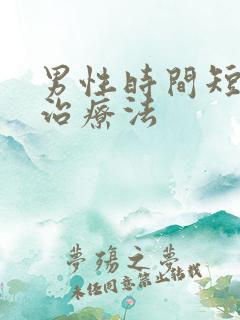 男性時間短
治療法
夢殤之夢
未經同意禁止轉載